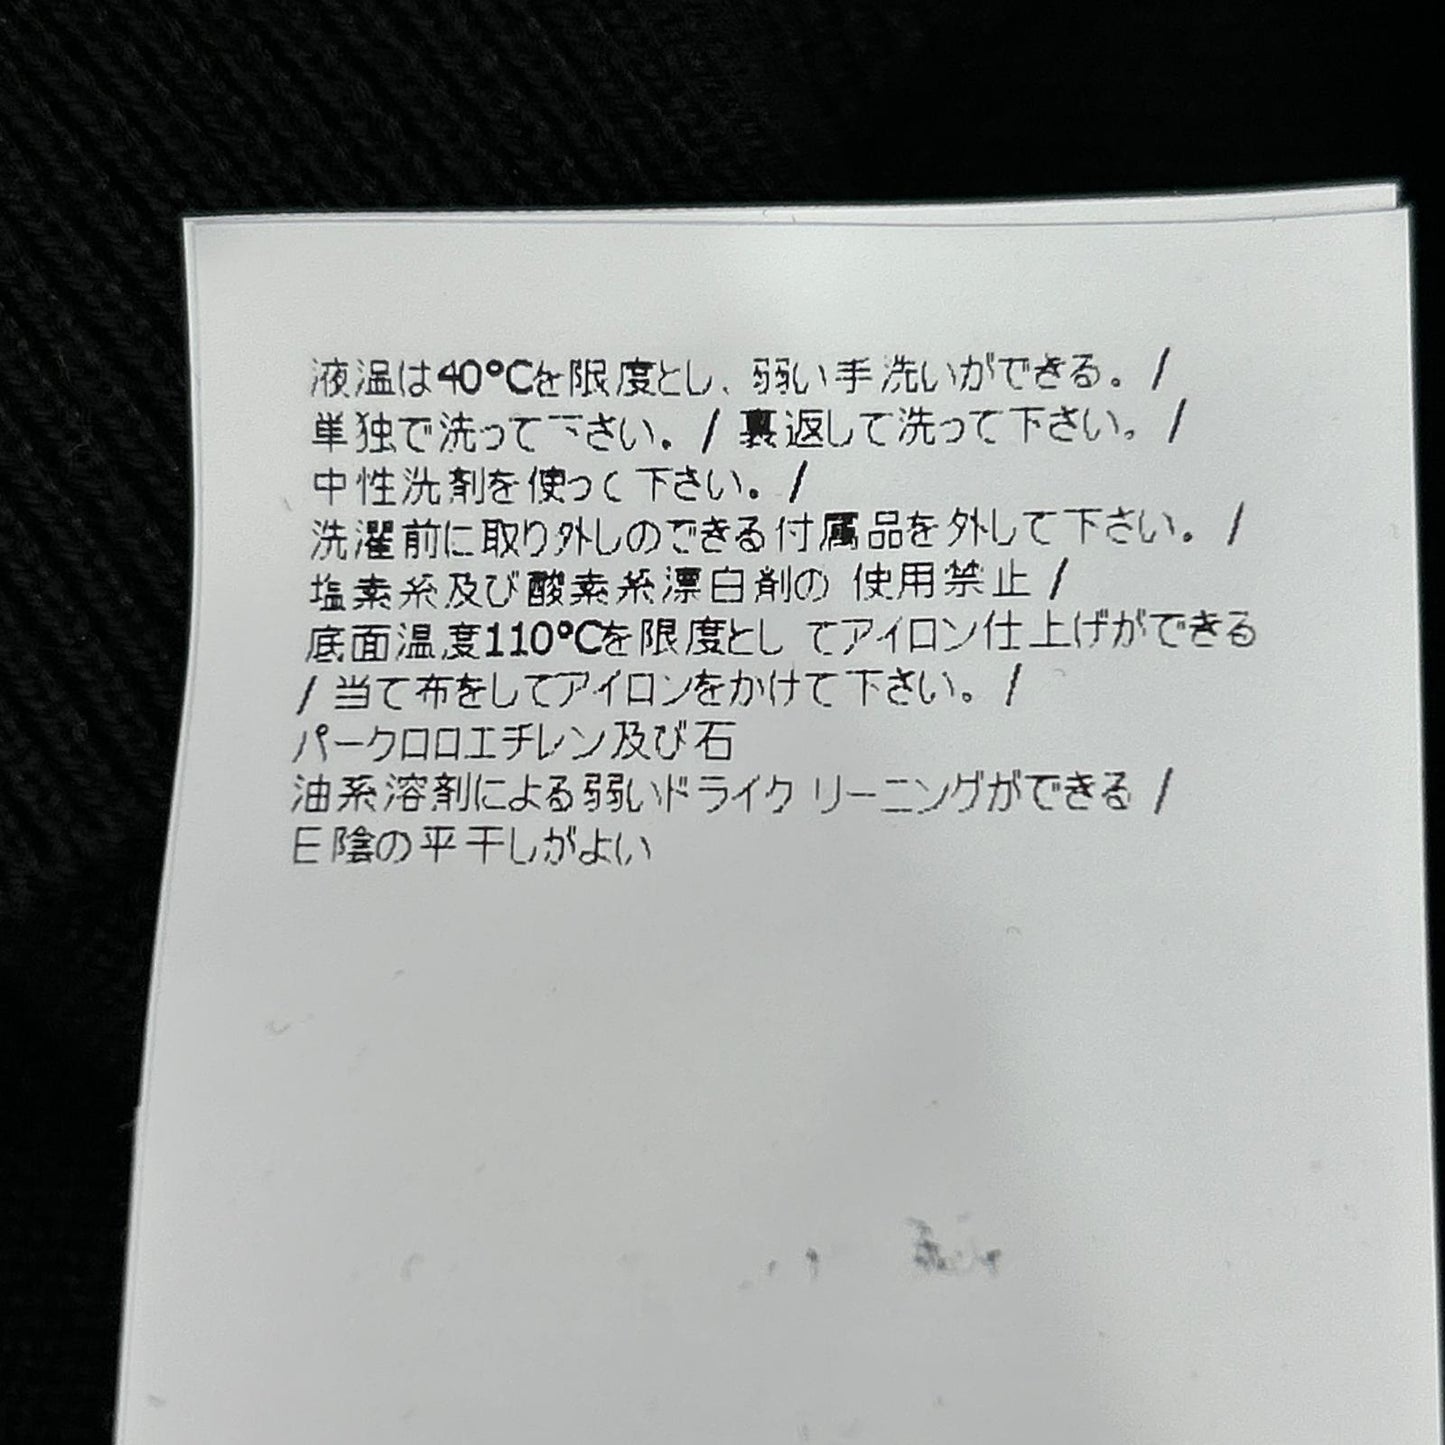 液温は40℃を限度とし、弱い手洗いができる。/
単独で洗って下さい。/ 裏返して洗って下さい。/
中性洗剤を使って下さい。/
洗濯前に取り外しのできる付属品を外して下さい。/
塩素系及び酸素系漂白剤の 使用禁止 /
底面温度110℃を限度とし てアイロン仕上げができる
/ 当て布をしてアイロンをかけて下さい。/
パークロロエチレン及び石
油系溶剤による弱いドライク リーニングができる /
日陰の平干しがよい